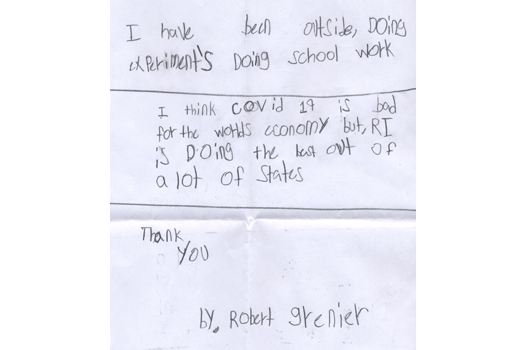 I have been outside, DOing
experiment's Doing school work
I think covid 19 is bad
for the worlds economy but, RI
is DOing the best out of
a lot of States
Thank
YOU
by, Robert grenier